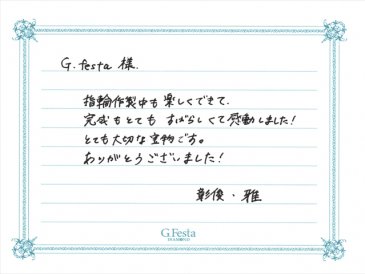 G.festa 様.
指輪作製中も楽しくできて、
完成もとても すばらしくて感動しました!
とても大切な宝物です。
ありがとうございました!
彰俊・雅
G.Festa
DIAMOND